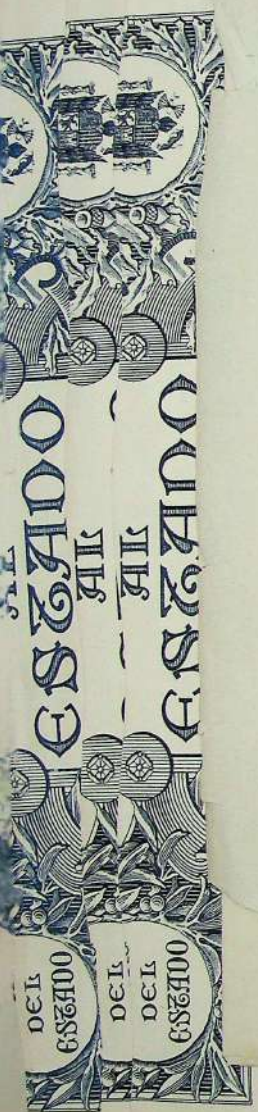 ESTADO
AL
AL
ESTADO
DEL
ESTADO
DEL
DEL
ESTADO